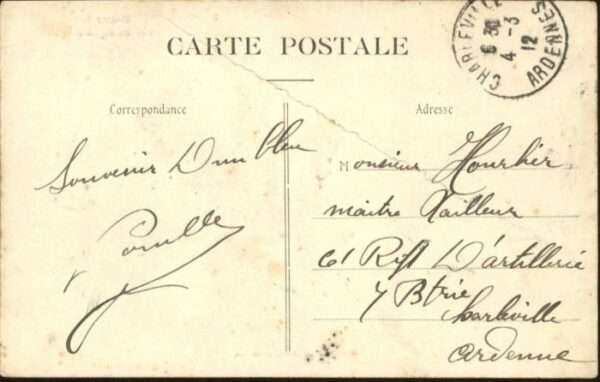 CARTE POSTALE
CHARLEVILLE
6 30
4 - 3
12
ARDENNES
Correspondance
Adresse
Souvenir D'un bleu
Monsieur Hourlier
maitre Tailleur
61 Rgt D'artillerie
7 Btrie
Charleville
ardenne